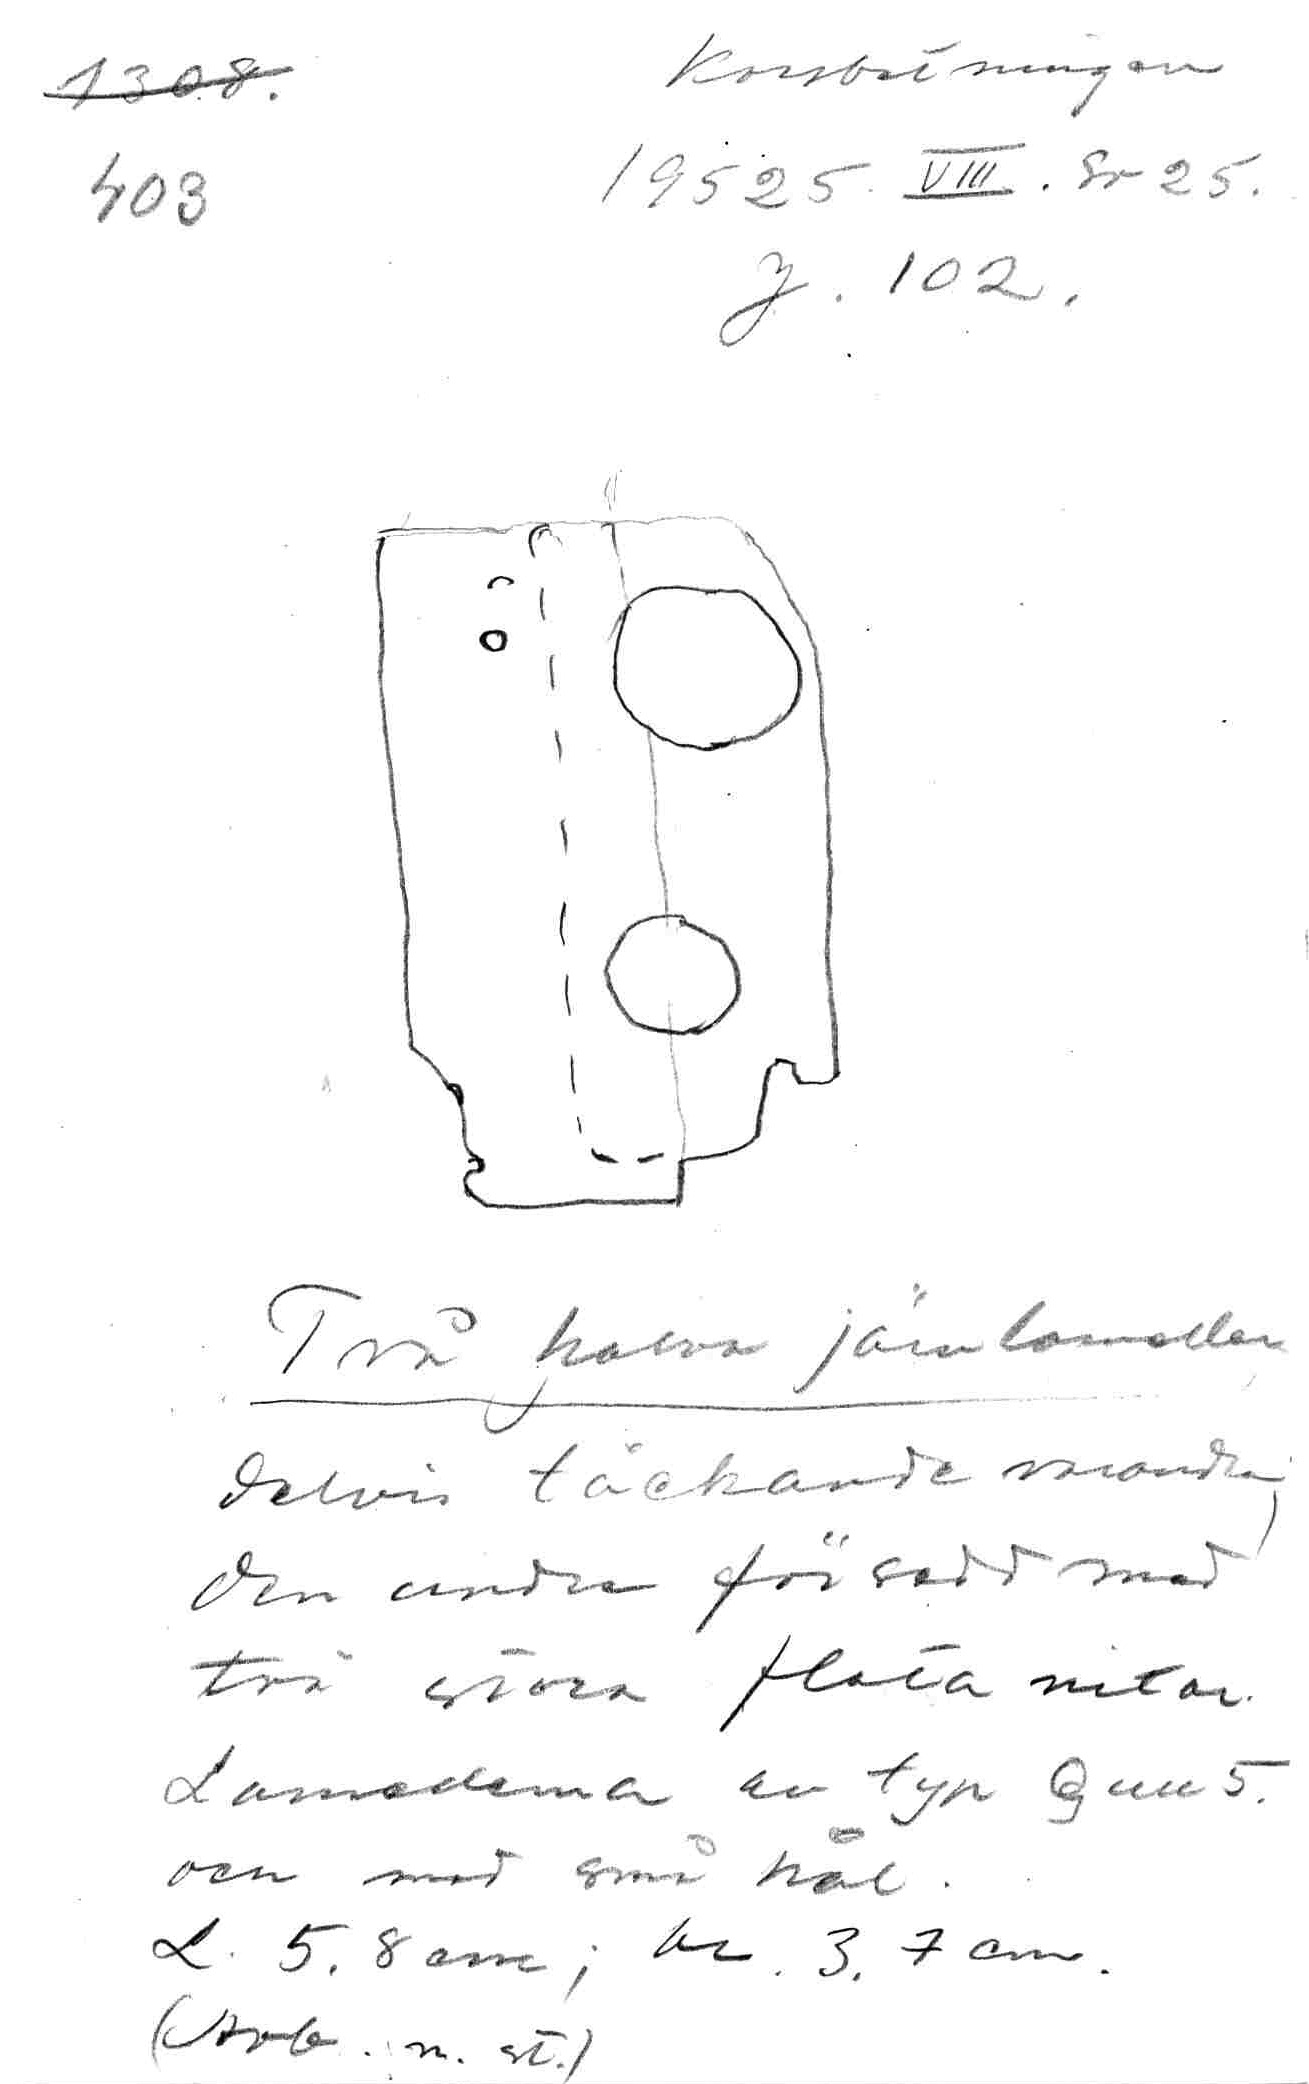 1308.
403
Korsbetningen
19525. VIII. Gr 25.
J. 102.
Två halva järnlameller
delvis täckande varandra,
den undre försedd med
två stora flata nitar.
Lamellerna av typ 5.
och med små hål.
L. 5,8 cm; br. 3,7 cm.